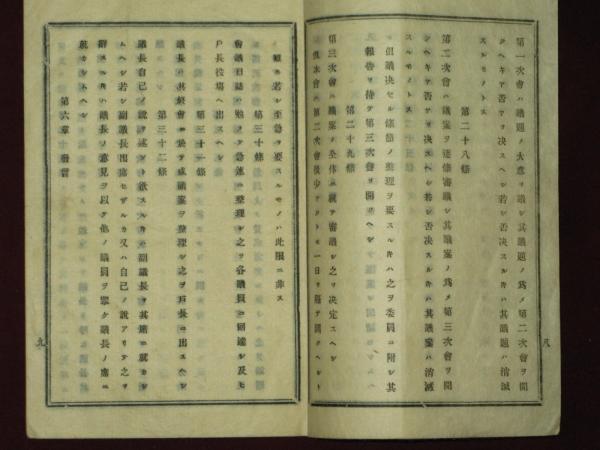 第一次會ハ議題ノ大意ヲ議シ其議題ノ爲メ第二次會ヲ開
クヘキヤ否ヤヲ决スヘシ若シ否决スルキハ其議題ハ消滅
スルモノトス
第二十八條
第二次會ハ議案ヲ逐條審議シ其議案ノ爲メ第三次會ヲ開
クヘキヤ否ヤヲ决スヘシ若シ否决スルキハ其議案ハ消滅
スルモノトス
但議决セル條節ノ整理ヲ要スルキハ之ヲ委員ニ附シ其
報告ヲ待テ第三次會ヲ開クヘシ
第二十九條
第三次會ハ議案ノ全体ニ就テ審議シ之ヲ决定スヘシ
但本會ハ第二次會後少クトモ一日ヲ隔テ開クヘシト
雖𪜈若シ至急ヲ要スルモノハ此限ニ非ス
第三十條
會議日誌ハ勉メテ急速ニ整理シ之ヲ各議員ニ回達シ及ヒ
戶長役塲ヘ出スヘシ
第三十一條
議長ハ其終會ニ於テ成議案ヲ整理シ之ヲ戶長ニ出スヘシ
第三十二條
議長自己ノ說ヲ述ント欲スルキハ副議長ヲ其席ニ就カシ
ムヘシ若シ副議長出席セザルカ又ハ自己ノ說アリテ之ヲ
辭スルキハ議長ノ意見ヲ以テ他ノ議員ヲ擧ケ議長ノ席ニ
就カシムヘシ
第六章 發言
八
九